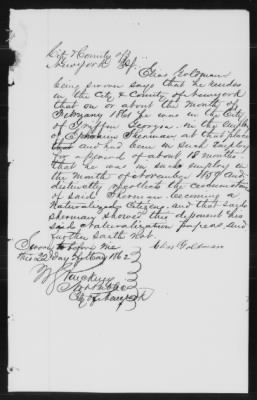 City & County of
New york SS.
Elias Goldman
being sworn says that he resides
in the City & County of New york
that on or about the month of
February 1861 he was in the City
of Griffin Georgia. in the employ
of Ephraim Sherman at that place
that and had been in such employ
for a period of about 18 months
that he was in such employ in
the month of November 1859 and
distinctly recollects the circumstance
of said Sherman becoming a
Naturalized Citizen, and that said
Sherman showed this deponent his
said naturalization papers, and
further saith not.
Sworn to before me
Elias Goldman
this 22 day of 1862